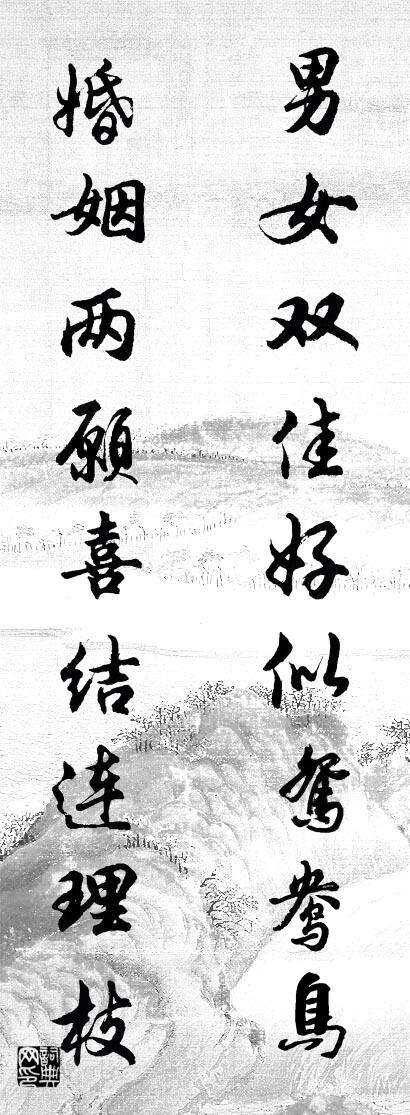 男女双佳好似鸳鸯鸟
婚姻两愿喜结连理枝